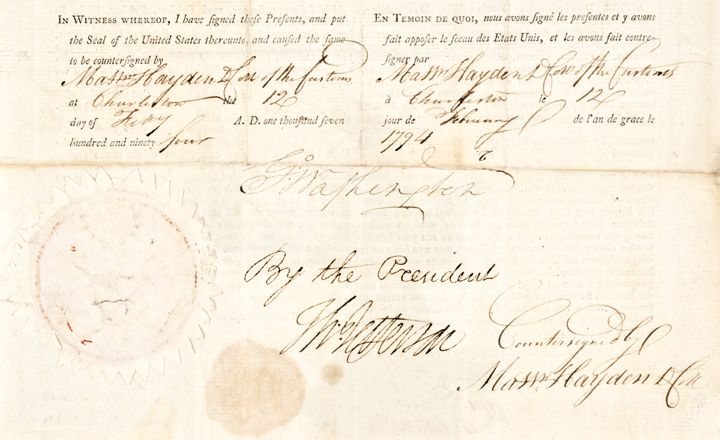 IN WITNESS WHEREOF, I have signed theſe Preſents, and put
the Seal of the United States thereunto, and cauſed the ſame
to be counterſigned by
Hayden D Coll of the Customs
at Charleston the 12
day of Feby A. D. one thouſand ſeven
hundred and ninety four
EN TEMOIN DE QUOI, nous avons ſigné les preſentes et y avons
fait appoſer le ſceau des Etats Unis, et les avons fait contre-
ſigner par
Hayden D Coll of the Customs
à Charleston le 12
jour de February de l'an de grace le
1794
Go Washington
By the President
Th: Jefferson
Countersigned by
Hayden D Coll